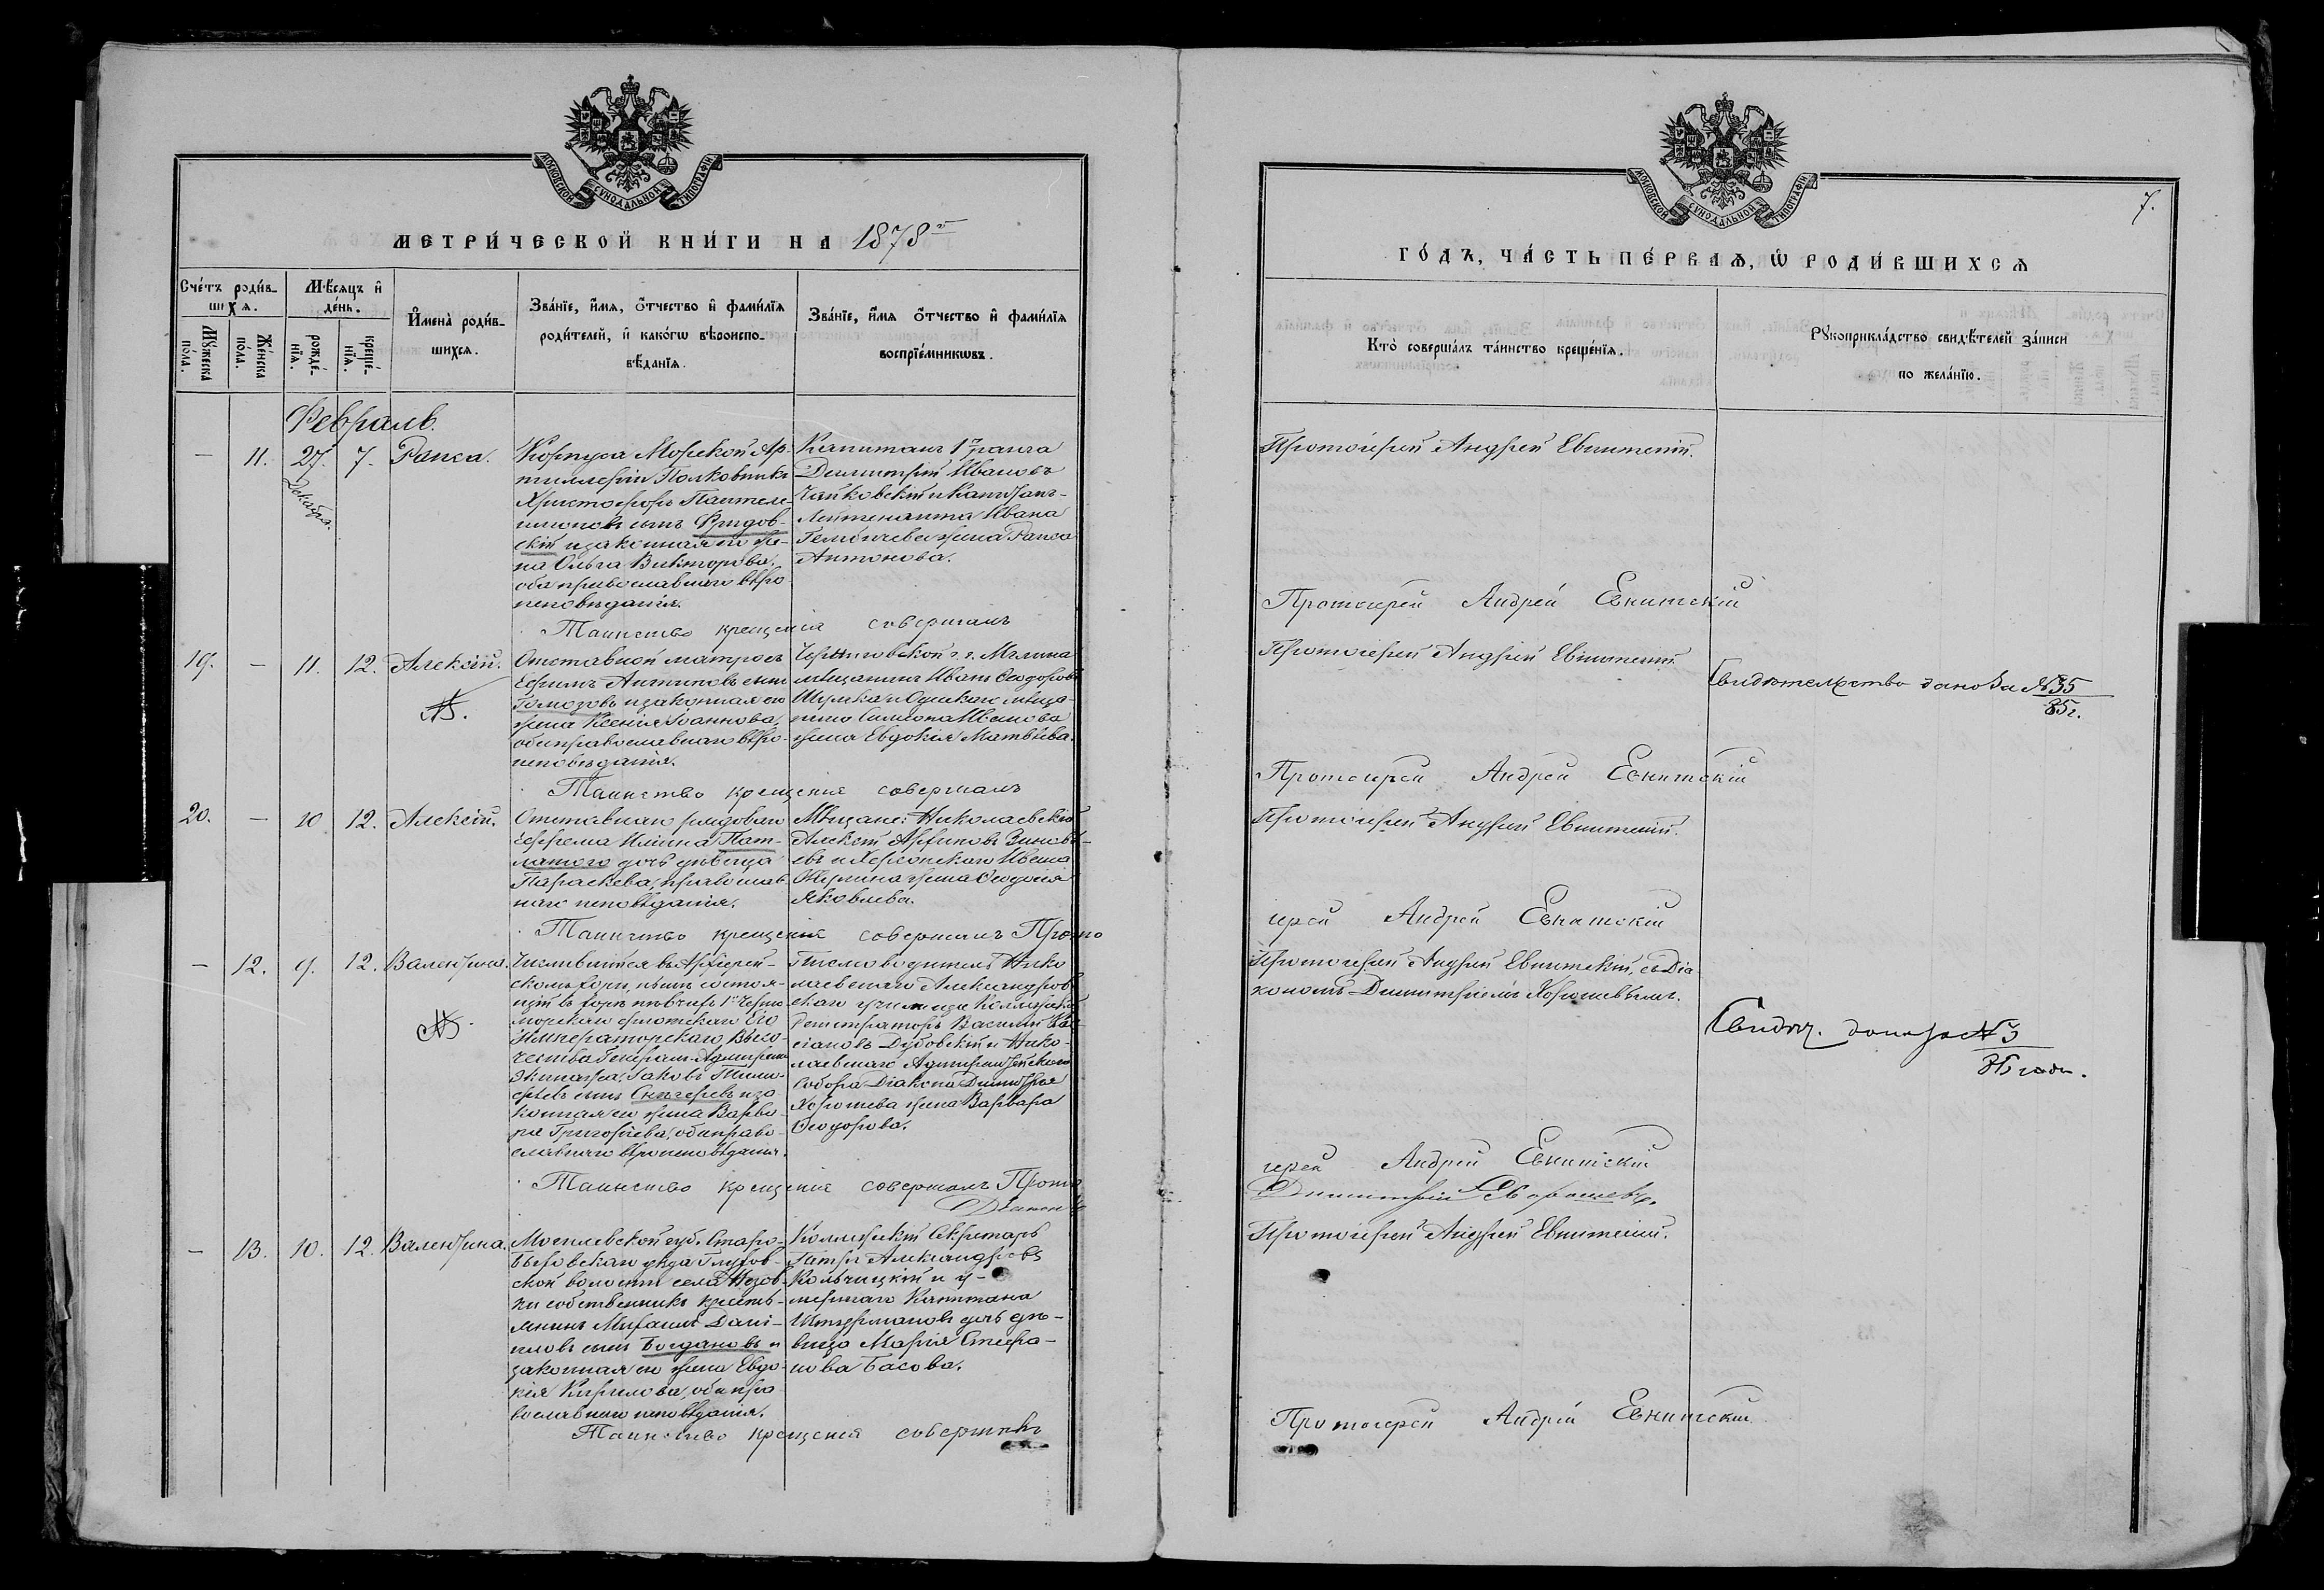 МОСКОВСКОЙ СѴНОДАЛЬНОЙ ТИПОГРАФІИ
МЕТРИ́ЧЕСКОЙ КНИ́ГИ НА 1878й
Сче́тъ роди́в-
шихся.
Му́жеска по́ла.
Же́нска по́ла.
Мѣ́сяцъ и҆
де́нь.
рожде́-
нїѧ.
креще́-
нїѧ.
И҆мена̀ роди́в-
шихсѧ.
Зва́нїе, и҆́мѧ, ѻ҆́тчество и҆ фами́лїѧ
роди́телей, и҆ како́гѡ вѣроиспо-
вѣ́данїѧ.
Зва́нїе, и҆́мѧ ѻ҆́тчество и҆ фами́лїѧ
воспрїе́мникѡвъ.
Февраль.
— 11. 27. Декабря. 7. Раиса.
Корпуса Морской Ар-
тиллеріи Полковникъ
Христофоръ Пантеле-
имоновъ сынъ Фридов-
скій и законная его же-
на Ольга Викторова,
оба православнаго вѣро
исповѣданія.
Капитанъ 1го ранга
Димитрій Ивановъ
Чайковскій и Капитанъ-
Лейтенанта Ивана
жена Раиса
Антонова.
Таинство крещенія совершалъ
19. — 11. 12. Алексій.
Отставной матросъ
Ефимъ Антиповъ сынъ
Гомозовъ и законная его
жена Ксенія Іоаннова,
оба православнаго вѣро-
исповѣданія.
Черниговской г. Мглина
мѣщанинъ Иванъ Ѳеодоровъ
Шумка и Одескаго мѣща-
нина Симеона Иванова
жена Евдокія Матвѣева.
Таинство крещенія совершалъ
20. — 10 12. Алексій.
Отставнаго рядоваго
Ефрема Ильина Пат-
латого дочь дѣвица
Параскева, православ-
наго исповѣданія.
Мѣщане: Николаевскій
Алексій Зиновь-
евъ и Херсонскаго Ивана
жена Ѳеодосія
Яковлева.
Таинство крещенія совершалъ Прото
— 12. 9. 12. Валентина.
Числившійся въ Архіерей-
скомъ хорѣ, нынѣ состоя-
щій въ хорѣ пѣвчихъ 1го Черно-
морскаго флотскаго Его
Императорскаго Высо-
чества Генералъ-Адмирала
Экипажа, Іаковъ Тимо-
феевъ сынъ Снѣгиревъ и за
конная его жена Варва-
ра Григорьева, оба право-
славнаго вѣроисповѣданія.
Писмоводитель Нико
лаевскаго Александров
скаго училища Коллежскій
Регистраторъ Василій Ка
сіановъ Дубовскій и Нико-
лаевскаго Адмиралтейскаго
Собора Діакона Димитрія
Хорошева жена Варвара
Ѳеодорова.
Таинство крещенія совершалъ Прото
Діаконъ
— 13. 10. 12. Валентина.
Могилевской губ. Старо-
Быховскаго уѣзда Глухов-
ской волости села
ки собственникъ кресть-
янинъ Михаилъ Дані-
иловъ сынъ Богдановъ и
законная его жена Евдо-
кія Кирилова, оба пра
вославнаго исповѣданія.
Коллежскій Секретарь
Петръ Александровъ
Кольчицкій и у-
мершаго Капитана
Штурмановъ дочь дѣ-
вица Марія Стефа-
нова Басова.
Таинство крещенія совершалъ
МОСКОВСКОЙ СѴНОДАЛЬНОЙ ТИПОГРАФІИ
7.
ГО́ДЪ, ЧА́СТЬ ПЕ́РВАѦ, Ѡ҆ РОДИ́ВШИХСѦ
Кто̀ соверша́лъ та́инство креще́нїѧ.
Рꙋкоприкла́дство свидѣ́телей за́писи
по жела́нїю.
Протоіерей Андрей Евнитскій.
Протоіерей Андрей Евнитскій
Протоіерей Андрей Евнитскій.
Свидѣтельство дано За № 35
85г.
Протоіерей Андрей Евнитскій
Протоіерей Андрей Евнитскій.
іерей Андрей Евнитскій
Протоіерей Андрей Евнитскій, съ Діа-
кономъ Димитріемъ Хорошевымъ.
Свидѣт. дано за № 3
86 года.
іерей Андрей Евнитскій
Димитрій Хорошевъ.
Протоіерей Андрей Евнитскій.
Протоіерей Андрей Евнитскій